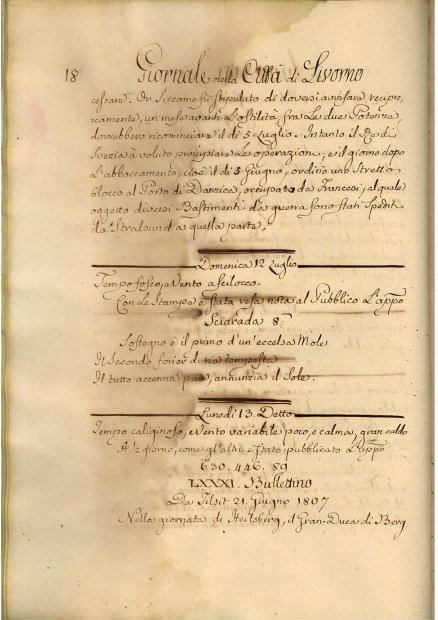 18 Giornale della Città di Livorno
cessare. Or siccome fù stipulato di doversi avvisare recipro-
camente, un mese avanti l'ostilità, fra le due Potenze,
dovrebbero ricominciare il dì 5 Luglio. Intanto il Re di
Svezia à voluto principiare le operazioni, e il giorno dopo
l'abboccamento, cioè il dì 5 Giugno, ordinò uno Stretto
blocco al Porto di Danzica, occupato da Francesi, al quale
oggetto diversi Bastimenti da guerra sono stati spediti
da Stralsund a quella parte.
Domenica 12 Luglio
Tempo fosco, e Vento a scilocco.
Con le Stampe è stata resa nota al Pubblico l'appo
Sciarada 8ª
Sostegno è il primo d'un'eccelsa Mole
Il Secondo forier d'ria tempesta
Il tutto accenna pace, annunzia il Sole.
Lunedì 13. Detto
Tempo caliginoso, e Vento variabile poco, e calma, gran caldo
A ½ giorno, come gl'altri è stato pubblicato l'appo
630. 446. 89
LXXXI. Bullettino
Da Tilsit 21. Giugno 1807
Nella giornata di Heilsberg, il Gran-Duca di Berg